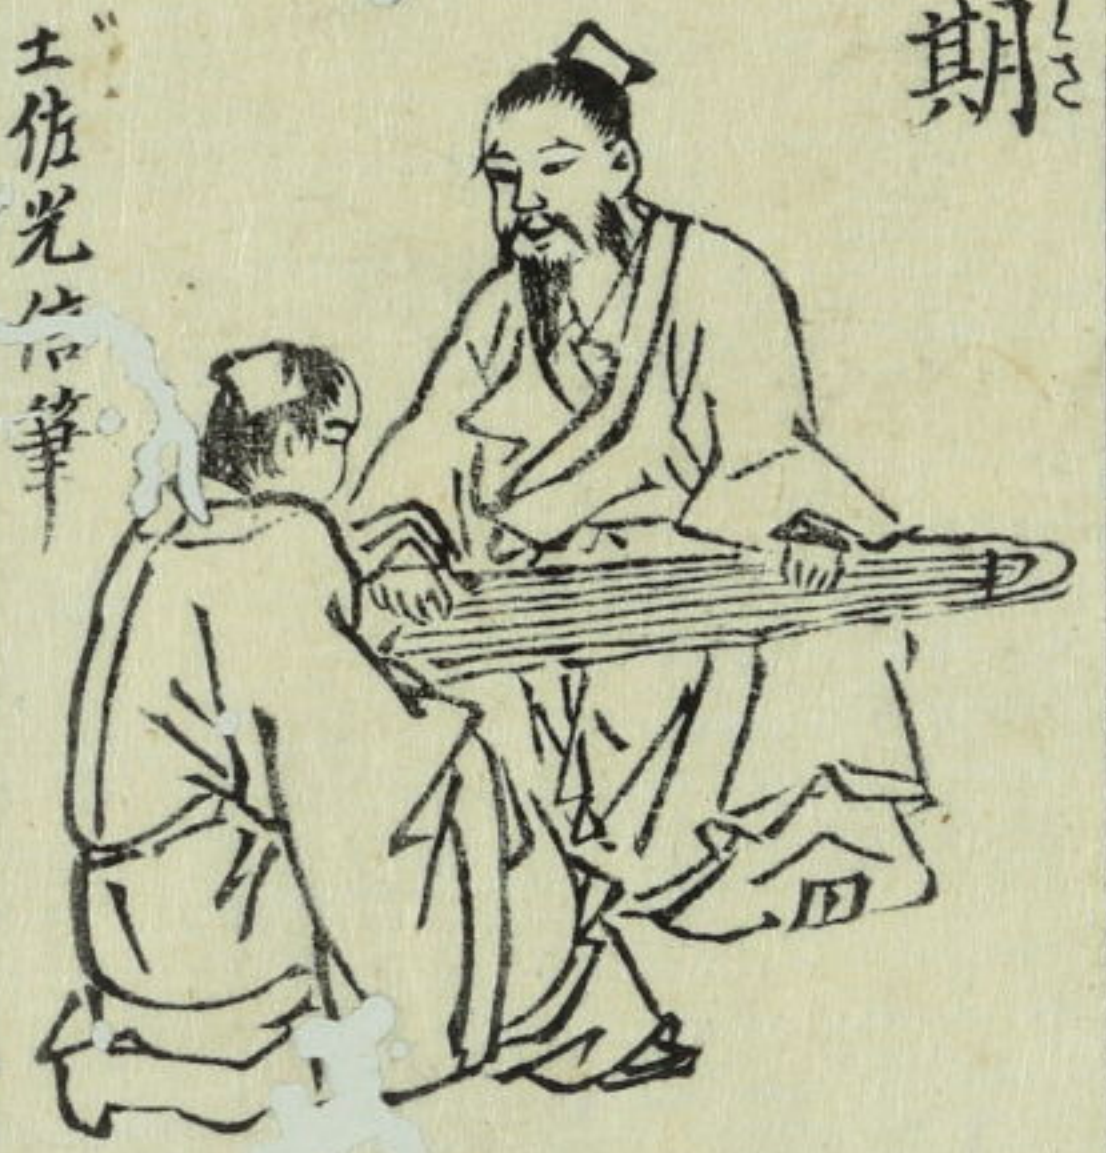 期
土佐光信筆